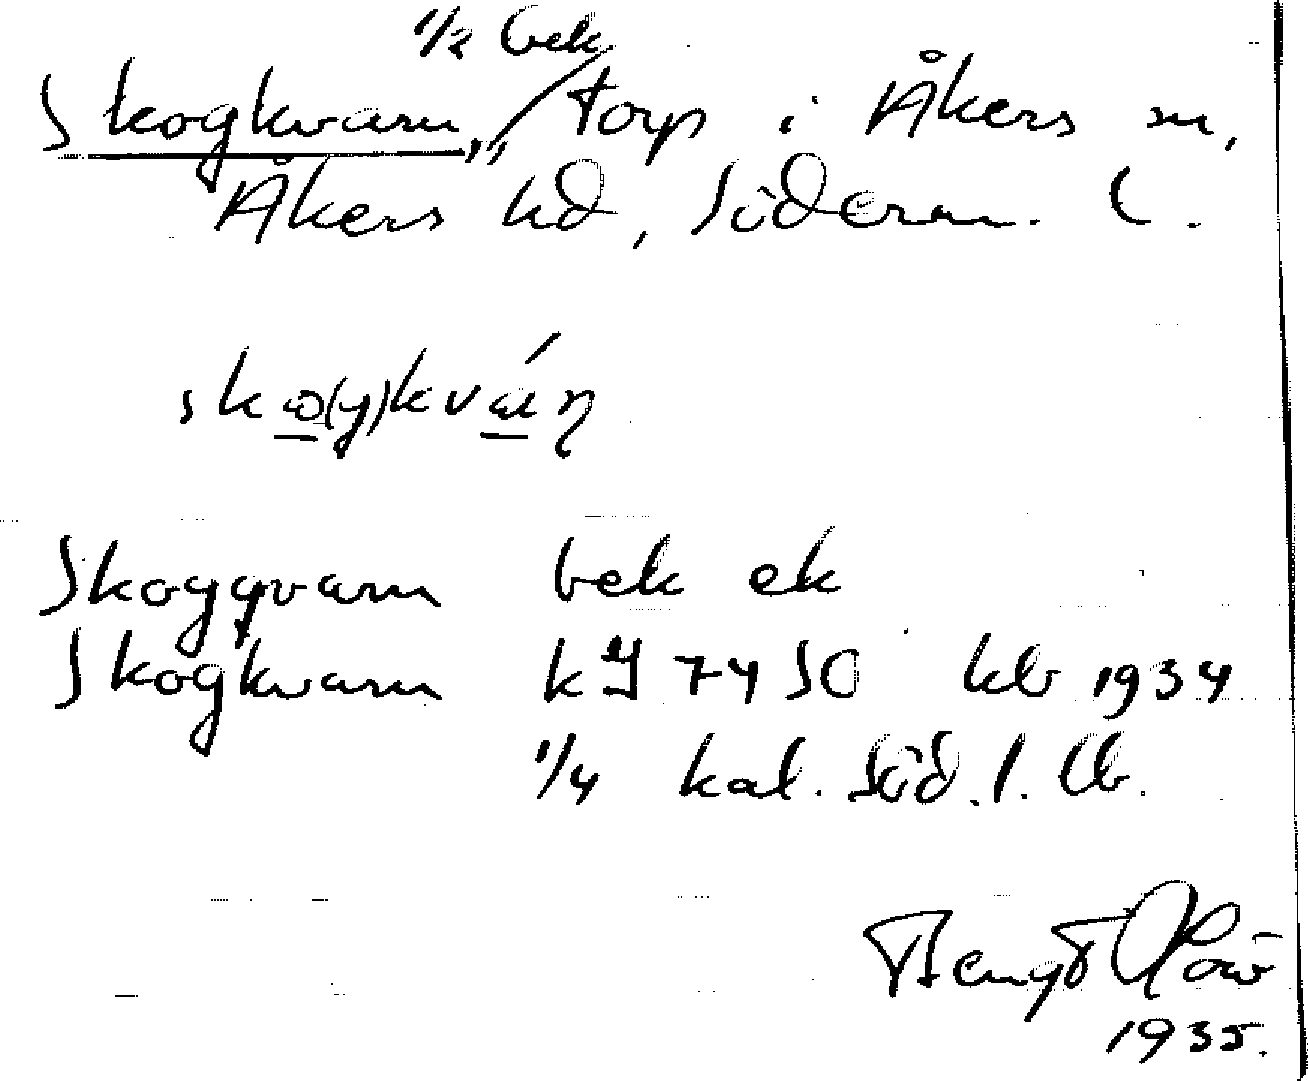 1/2 bek
Skogkvarn, torp i Åkers sn,
Åkers hd, Söderm. l.
sko(g)kváη
Skogqvarn bek ek
Skogkvarn k 74 SO kb 1934
1/4 kal. Söd. l. lb.
Bengt
1935.